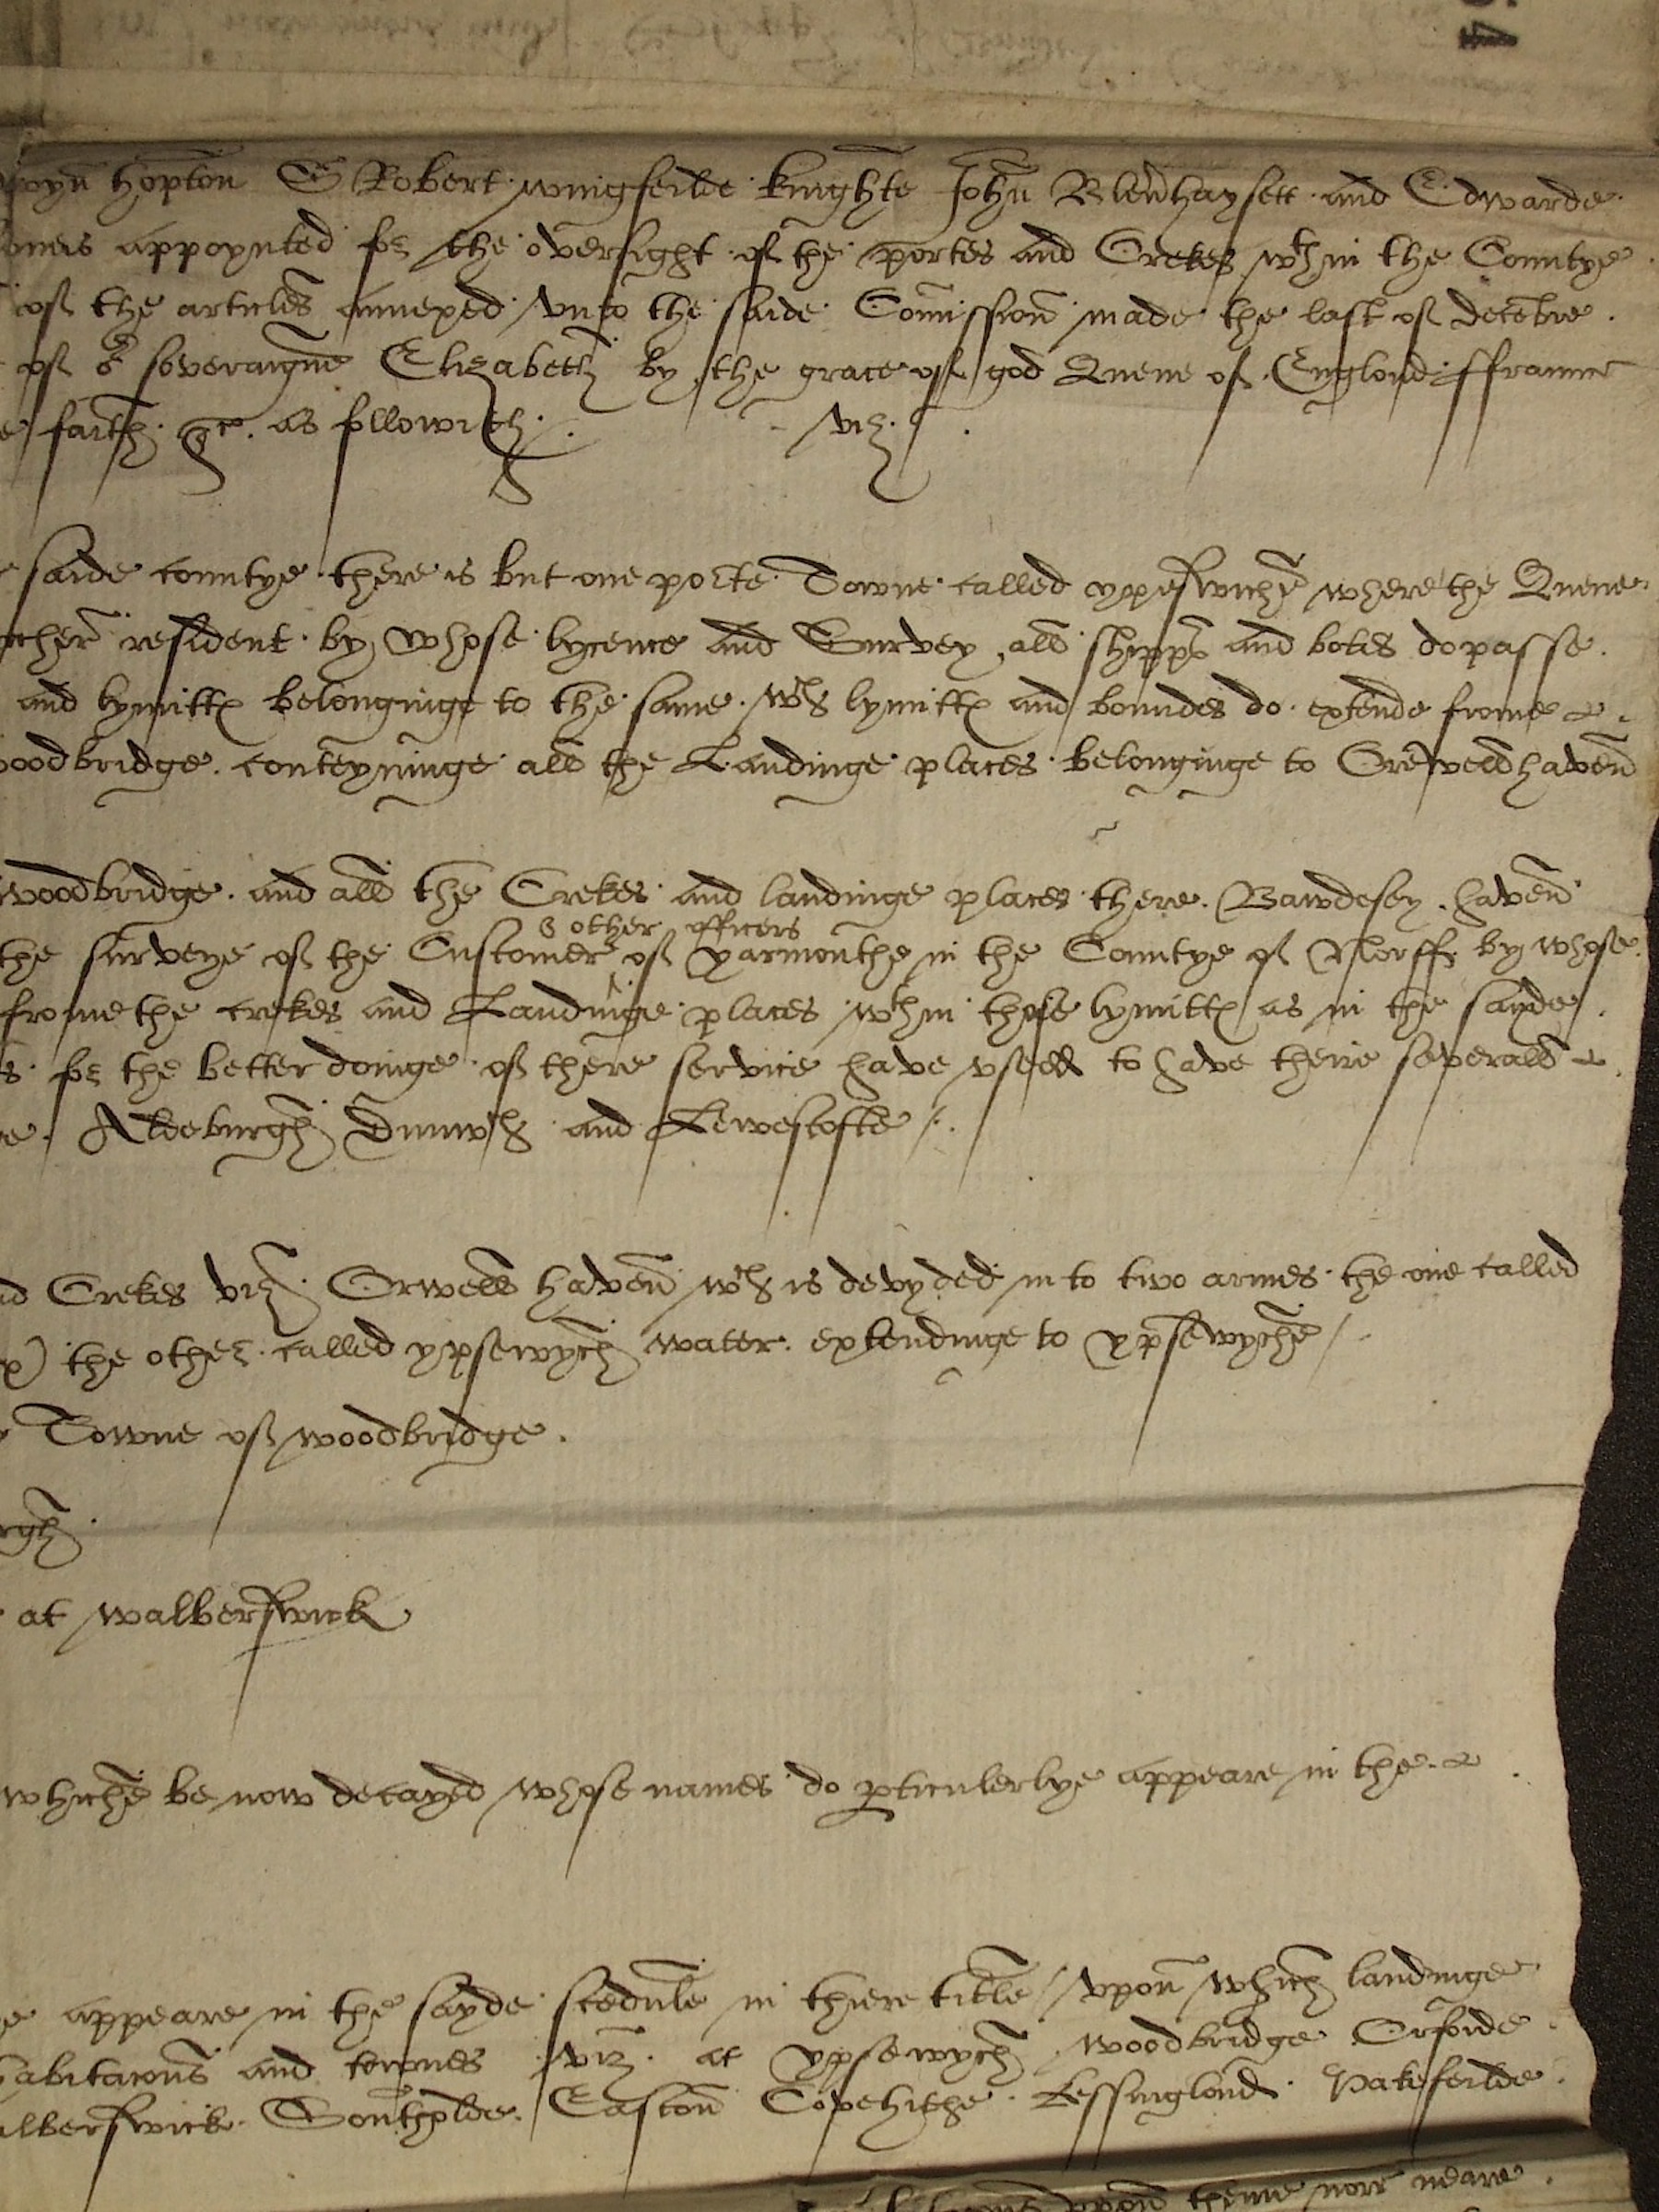 hopton S Robert wingfeilde knighte John Blenhaysett and Edwarde
appoynted for the oversight of the portes and Crekes wthin the Countye
of the articles annexed vnto the saide Comission made the last of decebre
of or soveraigne Elizabeth by the grace of god Quene of Englond ffraunce
faith &c. as followith viz.
saide countye there is but one porte Towne called ypeswiche where the Quene
resident by whose lycence and Survey all shipps and botes do passe
and lymitts belonginge to the same wch lymitts and boundes do extende frome
woodbridge conteyninge all the Landinge places belonginge to Orewell haven
woodbridge and all the Crekes and landinge places there Bawdesey haven
& other officers
the surveye of the Customer of yarmouthe in the Countye of Norff by whose
frome the crekes and Landinge places wthin those lymitts as in the sayde
for the better doinge of there service have vsed to have theire severall
Aldeburgh Dunwch and Lewestofte
Crekes viz Orwell haven wch is devyded in to two armes the one called
the other called ypsewych water extendinge to ypsewyche
Towne of woodbridge.
at walberswick
whiche be now decayed whose names do pticulerlye appeare in the
appeare in the sayde scedule in there title / vpon which landinge
habitacons and townes viz. at ypsewych woodbridge Orforde
walberswick Southolde Easton Covehithe Kessinglond Pakefeilde
vpon theme nor neare